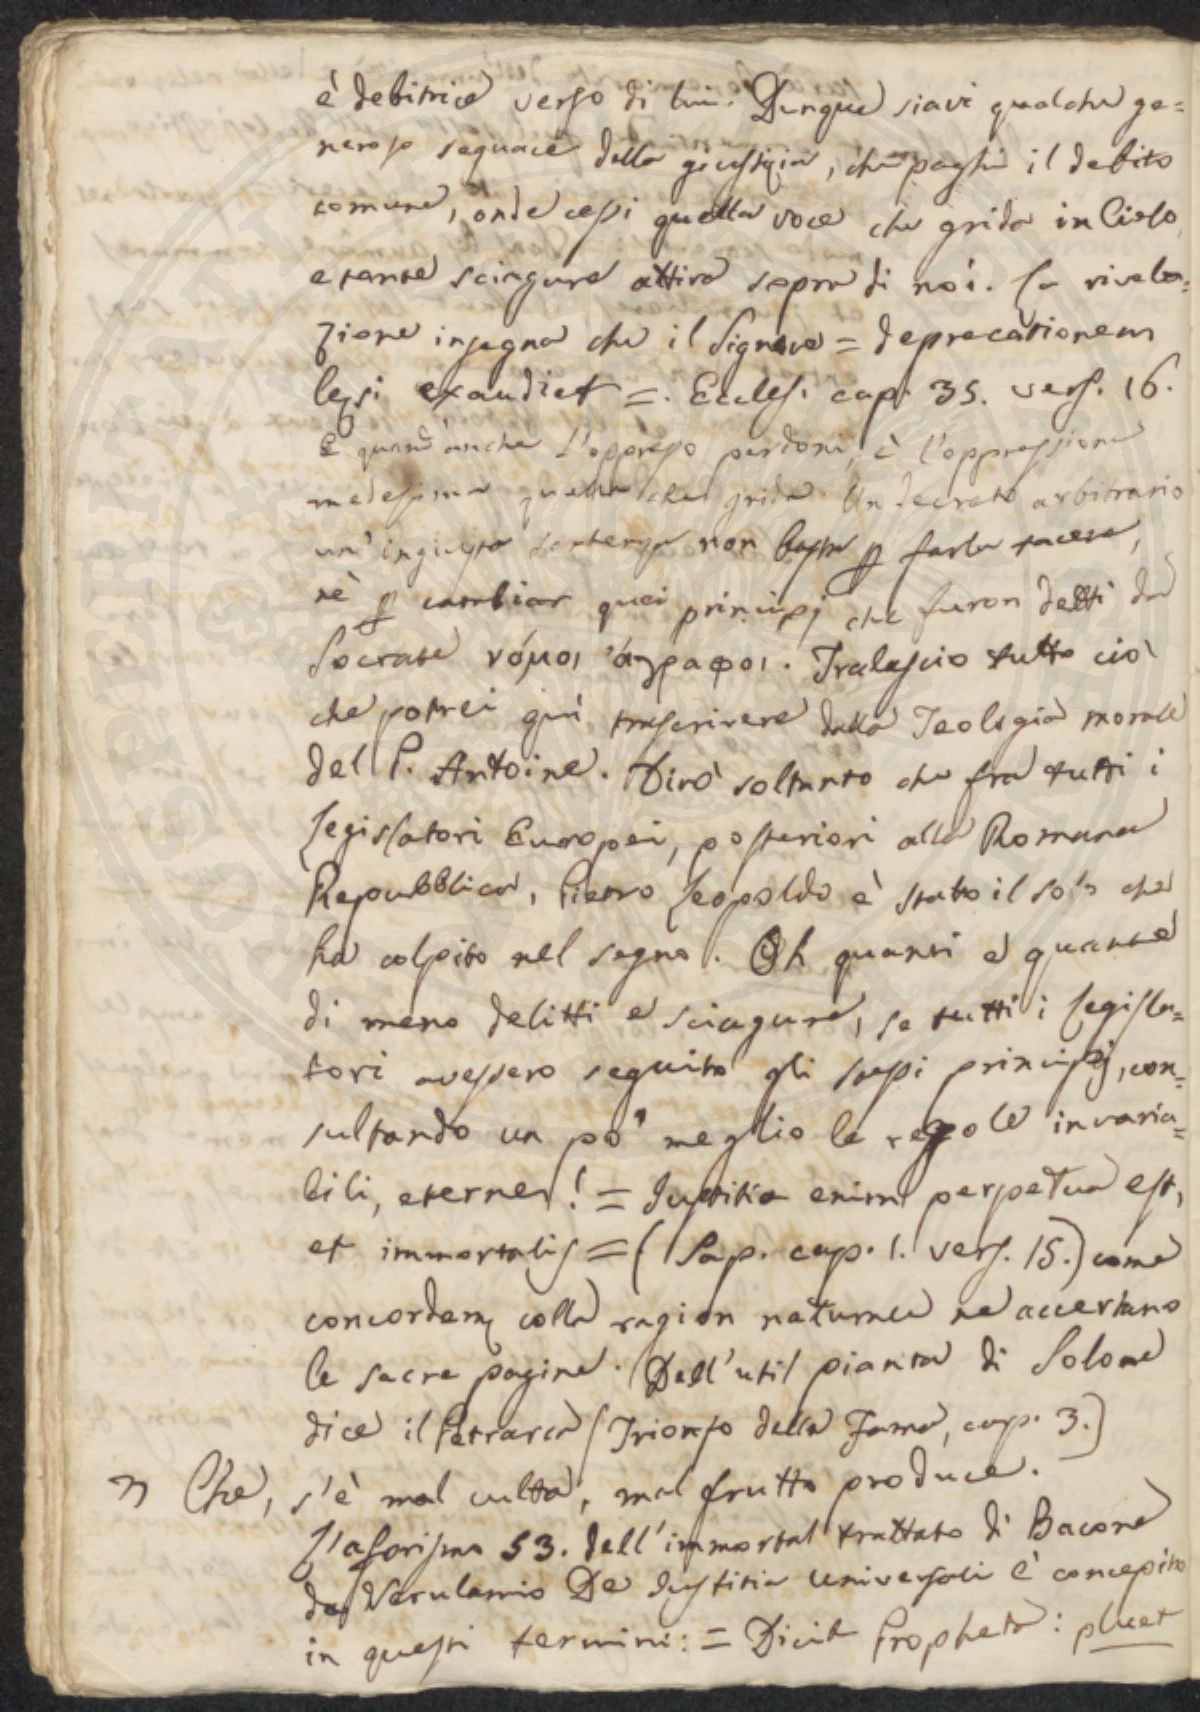 è debitrice verso di lui. Dunque siavi qualche ge=
neroso seguace della giustizia, che paghi il debito
comune, onde cessi quella voce che grida in Cielo,
e tante sciagure attira sopra di noi. La rivela=
zione insegna che il Signore = deprecationem
lęsi exaudiet =. Eccles. cap. 35. vers. 16.
E quand'anche l'oppresso perdoni, è l'oppressione
medesima quella che grida. Un decreto arbitrario
un' ingiusta sentenza non basta p farla tacere,
nè p cambiar quei principj che furon detti da
Socrate νόμοι ἄγραφοι. Tralascio tutto ciò
che potrei quì trascrivere dalla Teologia morale
del P. Antoine. Dirò soltanto che fra tutti i
Legislatori Europei, posteriori alla Romana
Repubblica, Pietro Leopoldo è stato il solo che
ha colpito nel segno. Oh quanti e quante
di meno delitti e sciagure, se tutti i Legisla=
tori avessero seguito gli stessi principj, con=
sultando un po' meglio le regole invaria=
bili, eterne! = Justitia enim perpetua est,
et immortalis = (Sap. cap. 1. vers. 15.) come
concordem. colla ragion naturale ne accertano
le sacre pagine. Dell'util pianta di Solone
dice il Petrarca (Trionfo della Fama, cap. 3.)
" Che, s'è mal culta, mal frutto produce.
L'aforismo 53. dell'immortal trattato di Bacone
da Verulamio De Justitia universali è concepito
in questi termini: = Dicit Propheta: pluet